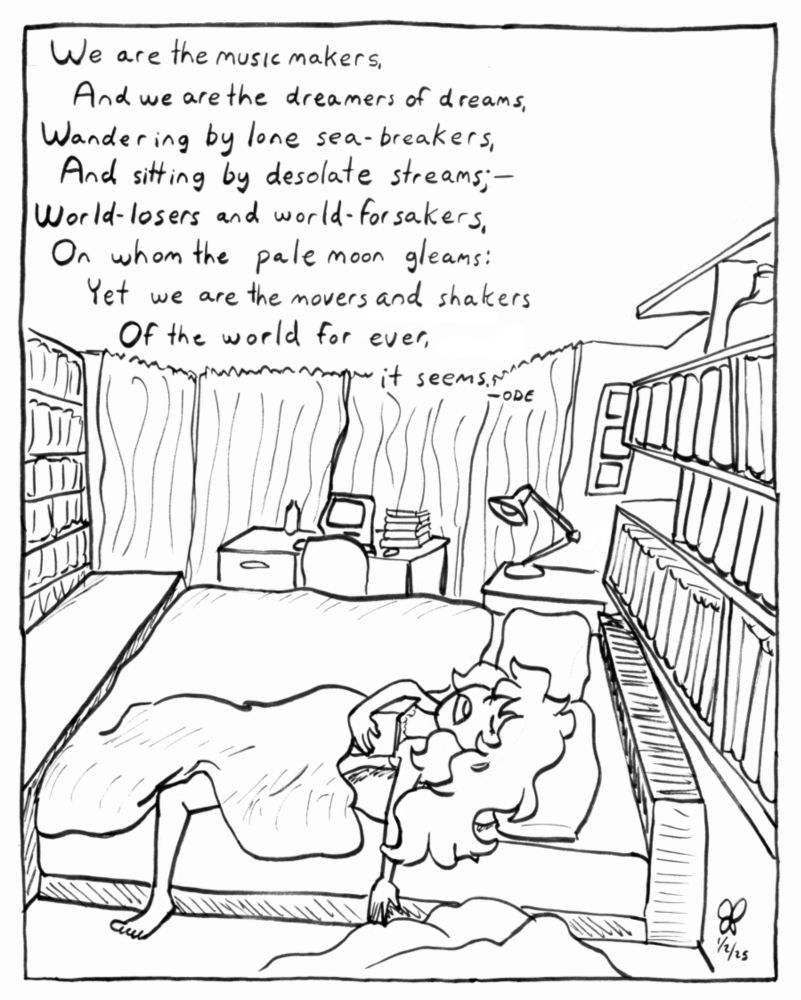 We are the music makers,
And we are the dreamers of dreams,
Wandering by lone sea-breakers,
And sitting by desolate streams;—
World-losers and world-forsakers,
On whom the pale moon gleams:
Yet we are the movers and shakers
Of the world for ever,
it seems.
—ODE
1/2/25